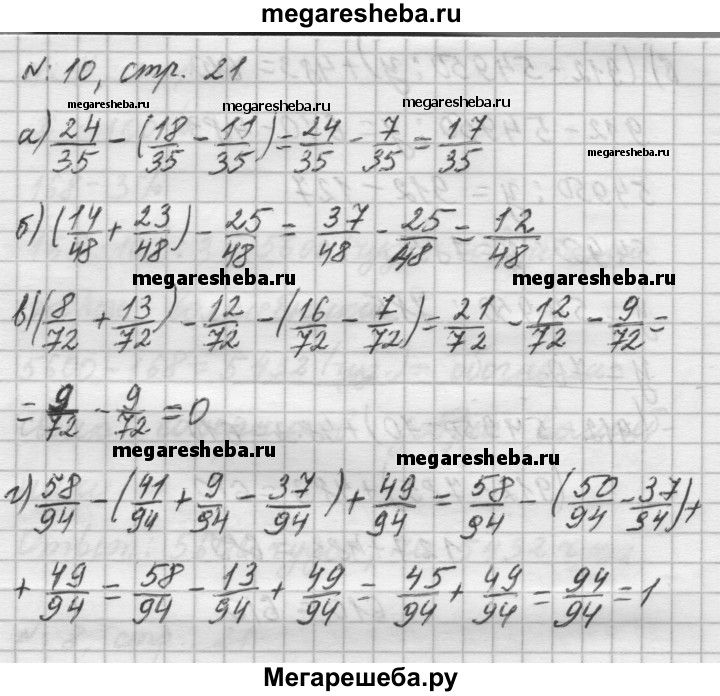 megaresheba.ru
№ 10, стр. 21
megaresheba.ru megaresheba.ru
а) 24/35 - (18/35 - 11/35) = 24/35 - 7/35 = 17/35
megaresheba.ru
б) (14/48 + 23/48) - 25/48 = 37/48 - 25/48 = 12/48
megaresheba.ru megaresheba.ru
в) (8/72 + 13/72) - 12/72 - (16/72 - 7/72) = 21/72 - 12/72 - 9/72 =
= 9/72 - 9/72 = 0
megaresheba.ru megaresheba.ru
г) 58/94 - (41/94 + 9/94 - 37/94) + 49/94 = 58/94 - (50/94 - 37/94) +
+ 49/94 = 58/94 - 13/94 + 49/94 = 45/94 + 49/94 = 94/94 = 1
Мегарешеба.ру